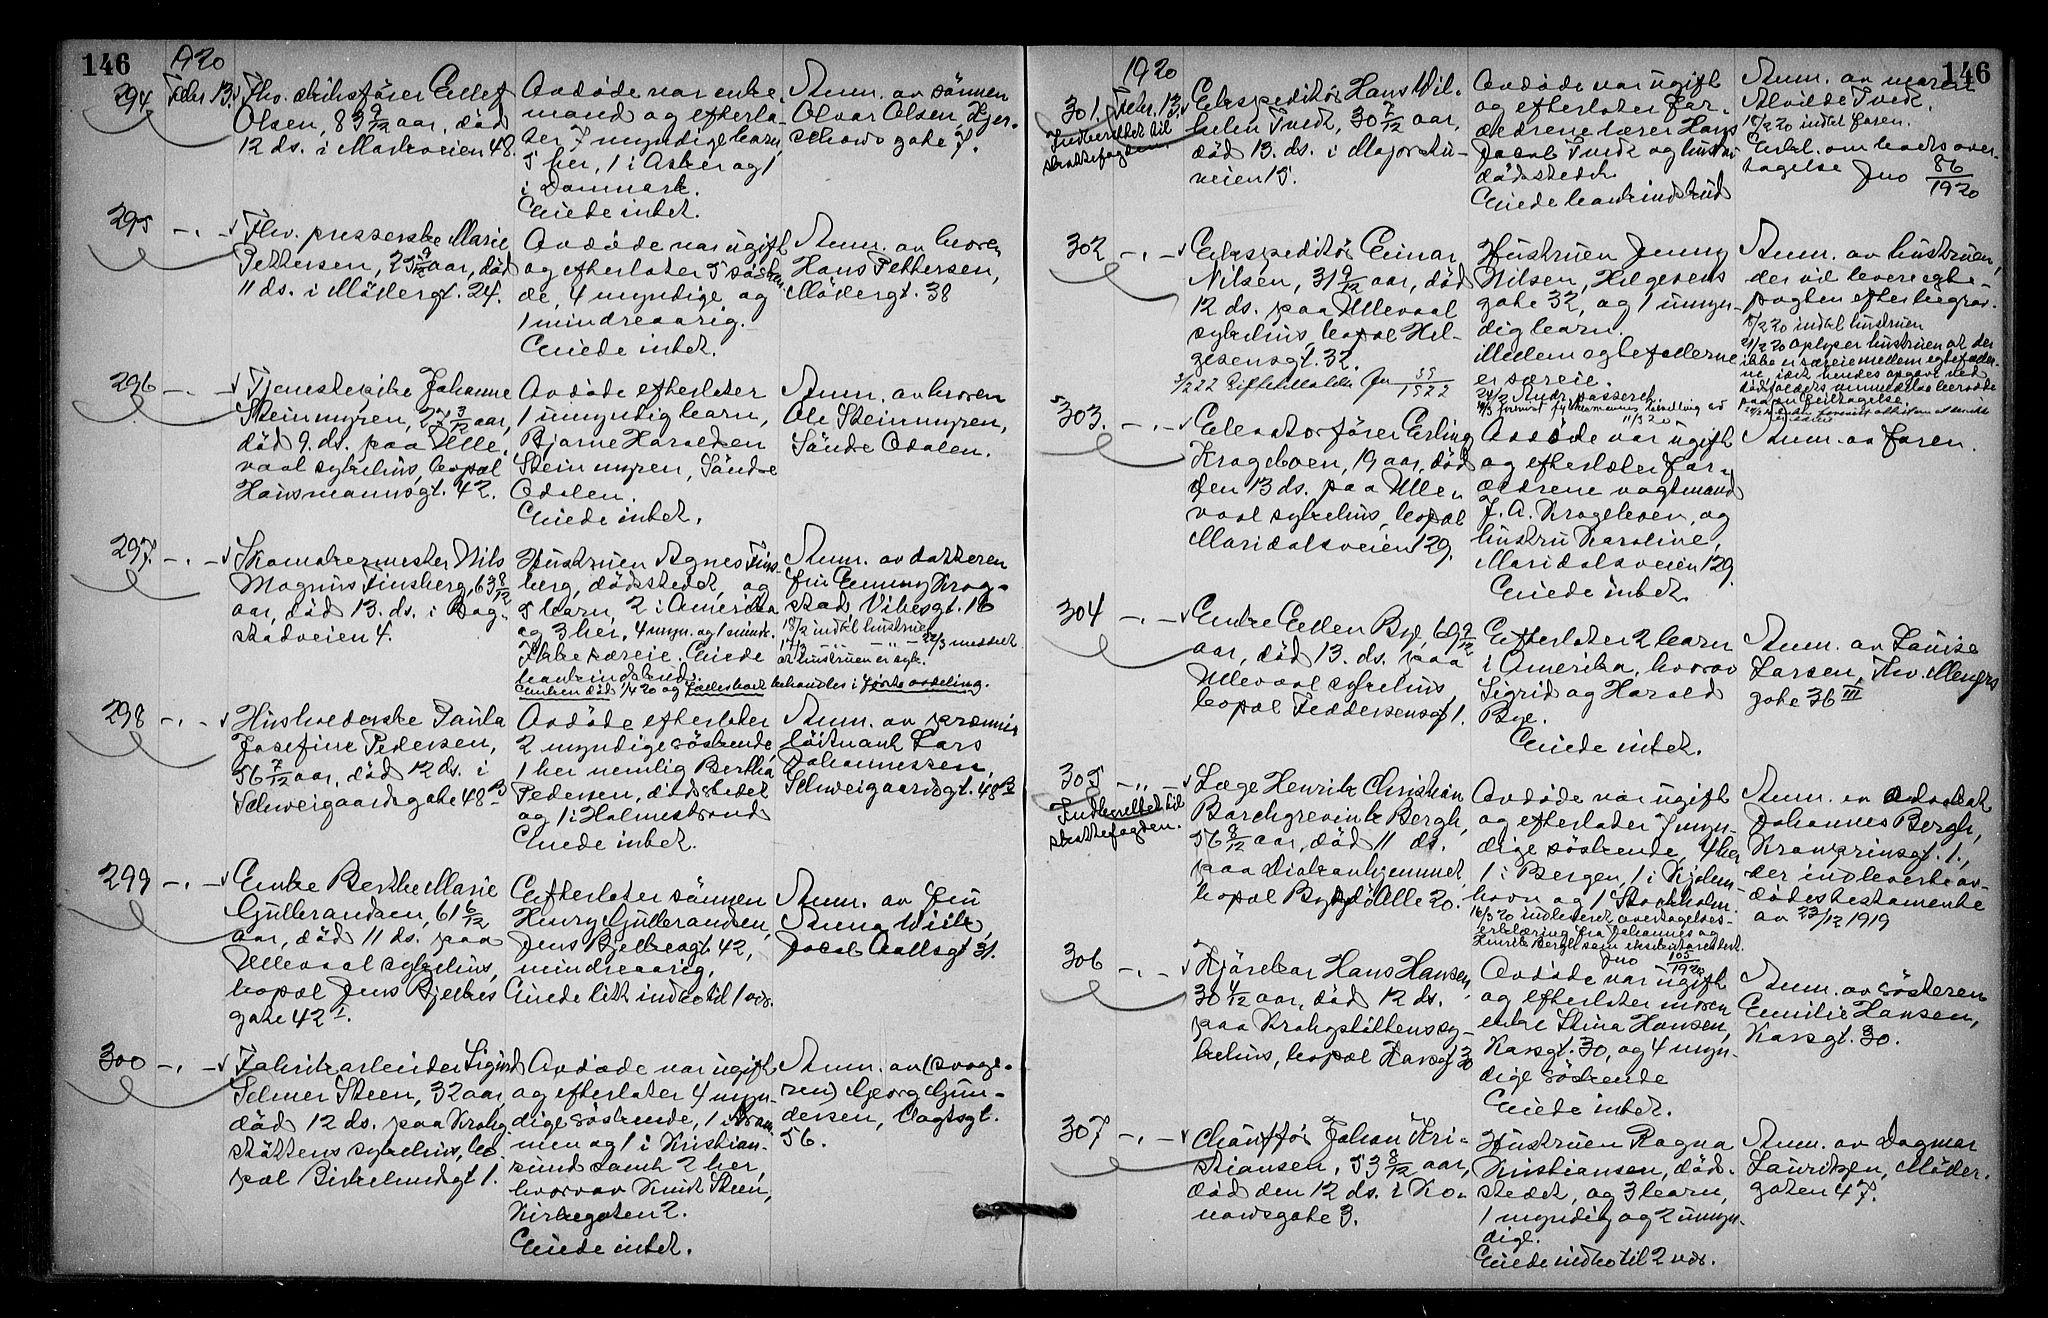 146
1920
294
Febr. 13.
Fhv. skibsfører Ellef
Olsen, 83 9/12 aar, død
12 ds. i Markveien 48.
Avdøde var enke-
mand og efterla-
ter 7 myndige barn,
5 her, 1 i Asker og 1
i Danmark.
Eiede intet.
Anm. av sønnen
Olvar Olsen, Hjer-
gate 7.
295
Fhv. presserske Marie
Pettersen, 25 aar, død
11 ds. i Møllergt. 24.
Avdøde var ugift
og efterlater 5 søsken-
de, 4 myndige og
1 mindreaarig.
Eiede intet.
Anm. av broren
Hans Pettersen,
Møllergt. 38
296
Tjenestepike Johanne
Steinmyren, 27 3/12 aar,
død 9. ds. paa Ulle-
vaal sykehus, bopæl
Hausmannsgt. 42.
Avdøde efterlater
1 umyndig barn,
Bjarne Haraldsen
Steinmyren, Søndre
Odalen.
Eiede intet.
Anm. av broren
Ole Steinmyren,
Søndre Odalen.
297.
Skomakermester Nils
Magnus Finsberg, 63 8/12
aar, død 13. ds. i Bog-
stadveien 4.
Hustruen Agnes Fins-
berg, dødsstedet, og
5 barn, 2 i Amerika
og 3 her, 4 myn. og 1 mindr.
Ikke særeie. Eiede
bankindskud.
Enken død 1/4 20 og fællesboet behandles i første avdeling.
Anm. av datteren
fru Emmy Krog-
stad, Vibesgt. 16
18/2 indkl hustruen
17/3 — " — 22/3 meddelt
at hustruen er syk.
298
Husholderske Paula
Josefine Pedersen,
56 7/12 aar, død 12 ds. i
Schweigaardsgate 48 B
Avdøde efterlater
2 myndige søskende,
1 her nemlig Bertha
Pedersen, dødsstedet
og 1 i Holmestrand
Eiede intet.
Anm. av premier-
løitnant Lars
Johannessen,
Schweigaardsgt. 48 B
299
Enke Berthe Marie
Gulbrandsen, 61 6/12
aar, død 11 ds. paa
Ullevaal sykehus,
bopæl Jens Bjelkes
gate 42 I.
Efterlater sønnen
Henry Gulbrandsen,
Jens Bjelkesgt 42,
mindreaarig.
Eiede litt indbo til 1 vær.
Anm. av Fru
Anna Wiik,
Jacob Aallsgt 31.
300
Fabrikarbeider Sigurd
Selmer Steen, 32 aar,
død 12 ds. paa Krohg
støttens sykehus, bo-
pæl Birkelundsgt 1.
Avdøde var ugift
og efterlater 4 myn-
dige søskende, 1 i Dram-
men og 1 i Kristian-
sund samt 2 her,
hvorav Knut Steen,
Kirkegaten 2.
Eiede intet.
Anm. av (svoge-
ren) Georg Gun-
dersen, Vogtsgt.
56.
146
1920
301.
Febr. 13.
Indberettet til
skattefogden.
Ekspeditør Hans Wil-
helm Tvedt, 30 7/12 aar,
død 13. ds. i Majorstu-
veien 15.
Avdøde var ugift
og efterlater for-
ældrene lærer Hans
Jacob Tvedt og hustru
dødsstedet.
Eiede bankindskud
Anm. av moren
Alvilde Tvedt.
18/2 20 indkl faren.
Erkl. om boets over-
tagelse Jno 86/1920
302
Ekspeditør Einar
Nilsen, 31 9/12 aar, død
12 ds. paa Ullevaal
sykehus, bopæl Hel-
gesensgt. 32.
Jnr 1522
Hustruen Jenny
Nilsen, Helgesens
gate 32, og 1 umyn-
dig barn.
Mellem ægtefællerne
er særeie.
Anm. av hustruen,
der vil levere egte-
pagten efter begrav.
18/2 20 indkl hustruen
21/2 20 oplyser hustruen at der
ikke er særeie mellem egtefæller-
ne,
303.
Elevatorfører Erling
Krageboen, 19 aar, død
den 13 ds. paa Ulle-
vaal sykehus, bopæl
Maridalsveien 129.
Avdøde var ugift
og efterlater for-
ældrene vagtmand
J. A. Krageboen, og
hustru Karoline,
Maridalsveien 129.
Eiede intet.
Anm. av faren.
304
Enke Ellen Bye, 69 9/12
aar, død 13. ds. paa
Ullevaal sykehus,
bopæl Feddersensgt 1.
Efterlater 2 barn
i Amerika, hvorav
Sigrid og Harald
Bye.
Eiede intet.
Anm. av Louise
Larsen, Thv. Meyers
gate 36 III
305
Indberettet til
skattefogden.
Læge Henrik Christian
Borchgrevink Bergh,
56 8/12 aar, død 11 ds.
paa Diakonhjemmet,
bopæl Bygdø Alle 20.
Avdøde var ugift
og efterlater 7 myn-
dige søskende, 4 her
1 i Bergen, 1 i Kjøben-
havn og 1 i Stockholm.
16/3 20 indleveret overtagelses-
erklæring fra Johannes og
Henrik Bergh som
Jno 105/1920
Anm. av advokat
Johannes Bergh,
Kronprinsgt. 1.,
der indleverte av-
dødes testamente
av 23/12 1919
306
Kjørekar Hans Hansen,
30 4/12 aar, død 12 ds.
paa Krohgstøttens sy-
kehus, bopæl Korsgt 30
Avdøde var ugift
og efterlater moren
enke Stina Hansen,
Korsgt. 30, og 4 myn-
dige søskende
Eiede intet.
Anm. av søsteren
Emilie Hansen,
Korsgt. 30.
307
Chauffør Johan Kri-
stiansen, 53 8/12 aar,
død den 12 ds. i Ko-
nowsgate 3.
Hustruen Ragna
Kristiansen, død-
stedet, og 3 barn,
1 myndig og 2 umyn-
dige.
Eiede indbo til 2 vær.
Anm. av Dagmar
Lauritzen, Møller-
gaten 47.